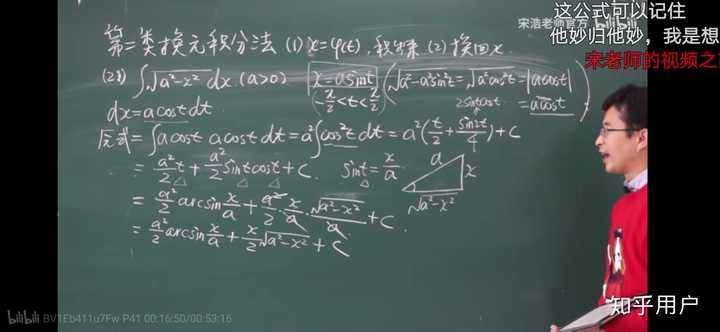 宋浩老师官方 bilibili
这公式可以记住
他妙归他妙，我是想
宋老师的视频之
第二类换元积分法 (1) x=φ(t), 积出来 (2) 换回x
(23) ∫√a²-x² dx (a>0) x=asint (√a²-a²sin²t=√a²cos²t=|acost|
-π/2<t<π/2 2sintcost =acost)
dx=acostdt
原式=∫acost acost dt=a²∫cos²t dt=a²(t/2+sin2t/4)+C
=a²/2 t+a²/2 sintcost+C. sint=x/a a x √a²-x²
=a²/2 arcsin x/a+a²/2·x/a·√a²-x²/a+C
=a²/2 arcsin x/a+x/2√a²-x²+C.
bilibili BV1Eb411u7Fw P41 00:16:50/00:53:16
知乎用户